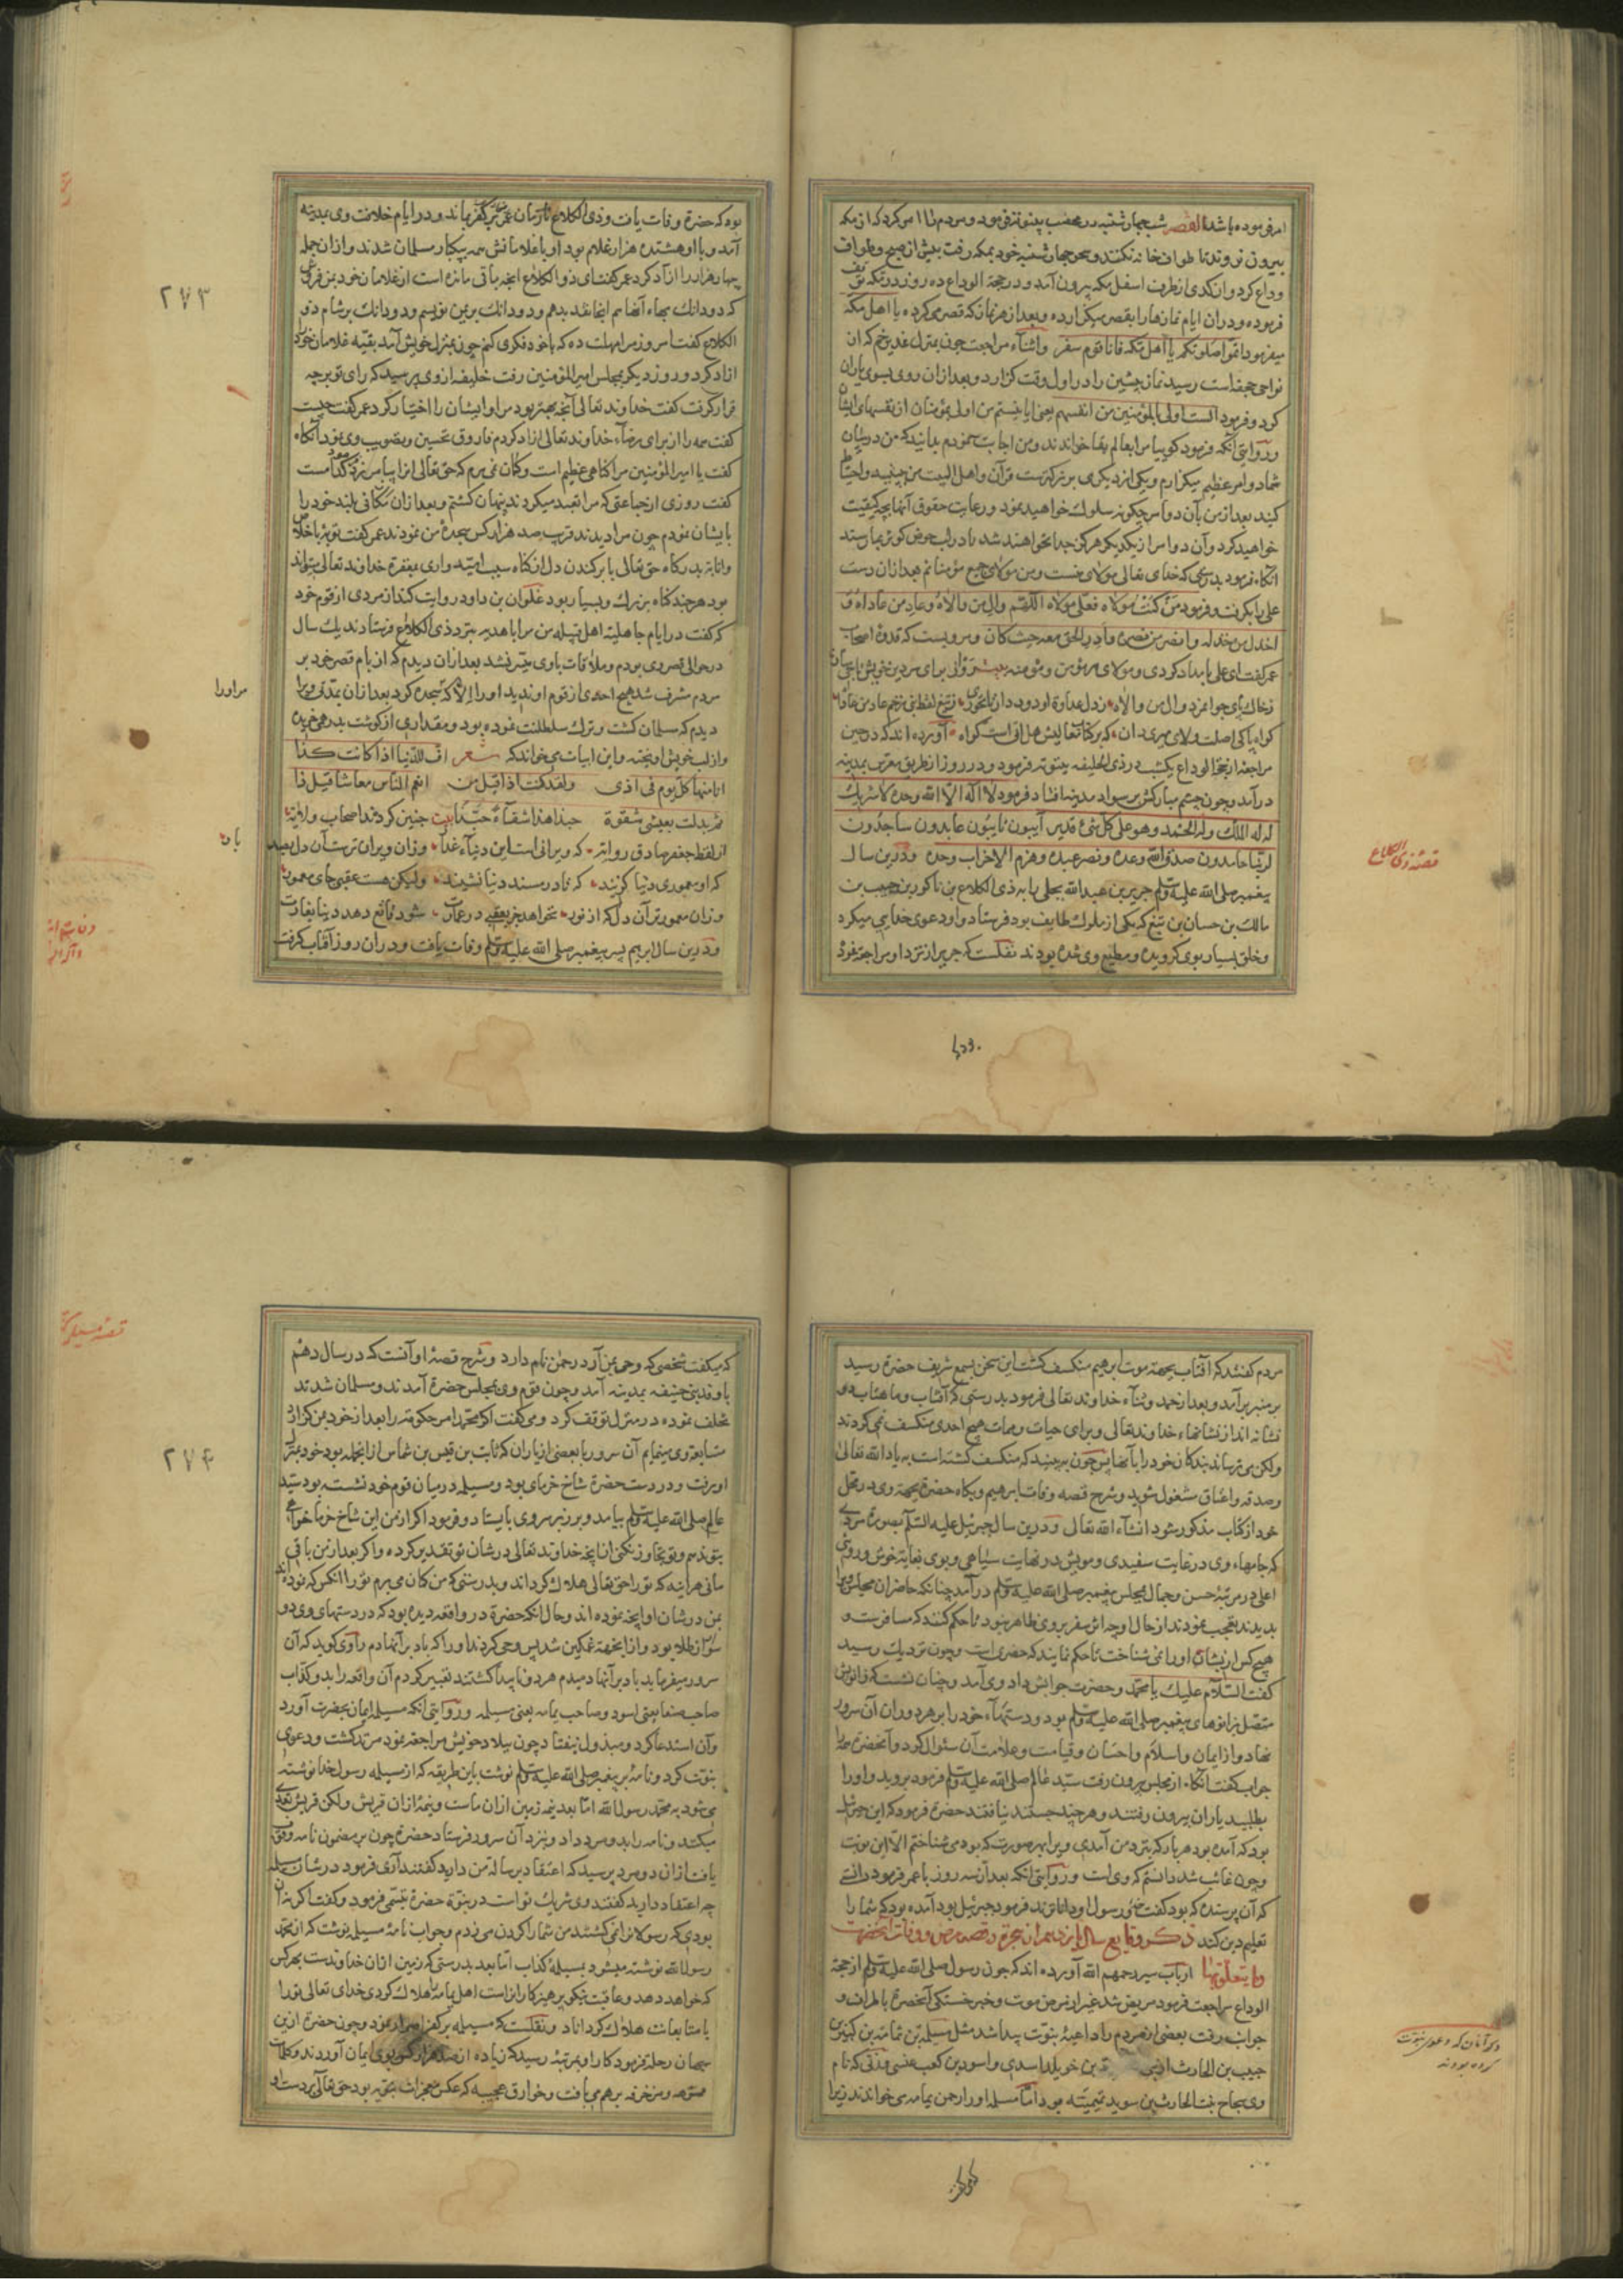 امر فرموده باشد القصه شب چهارشنبه در محصب بیتوته فرمود و مردم را امر کرد که از مکه
بیرون نروند تا طواف خانه نکنند و سحر چهارشنبه خود بمکه رفت پیش از صبح و طواف
وداع کرد و از کدی از طرف اسفل مکه بیرون آمد و در حجة الوداع ده روز در مکه توقف
فرموده و در ان ایام نمازها را بقصر میگزارده و بعد از هر نماز که قصر می کرده با اهل مکه
میفرمود اتموا صلوتکم یا اهل مکه فانا قوم سفر و اثناء مراجعت چون بمنزل غدیر خم که از
نواحی جحفه است رسید نماز پیشین را در اول وقت گزارد و بعد ازان روی بسوی یاران
کرد و فرمود الست اولی بالمؤمنین من انفسهم یعنی ایا نیستم من اولی بمؤمنان از نفسهای ایشان
و روایتی آنکه فرمود گوییا مرا بعالم بقا خواندند و من اجابت نمودم بدانید که من در میان
شما دو امر عظیم میگذارم و یکی از دیگری بزرگترست قرآن و اهل البیت من ببینید و احتیاط
کنید بعد از من بآن دو امر چگونه سلوک خواهید نمود و رعایت حقوق آنها بچه کیفیت
خواهید کرد و آن دو امر از یکدیگر هرگز جدا نخواهند شد تا در لب حوض کوثر بمن رسند
آنکاه فرمود بدرستی که خدای تعالی مولای منست و من مولای جمیع مؤمنانم بعد ازان دست
علی را بگرفت و فرمود من کنت مولاه فعلی مولاه اللهم وال من والاه وعاد من عاداه و
اخذل من خذله وانصر من نصره وادر الحق معه حیث کان و مرویست که قدوه اصحاب
عمر گفت ای علی بامداد کردی و مولای هر مؤمن و مؤمنه
کواه پاکی اصلت ولای حیدر دان که بر کمال معالیش هل اتی است کواه آورده اند که در حین
مراجعه از حجة الوداع یکشب در ذی الحلیفه بیتوته فرمود و در روز از طریق معرس بمدینه
درآمد و چون چشم مبارکش بر سواد مدینه افتاد فرمود لا اله الا الله وحده لا شریک
له له الملک وله الحمد وهو علی کل شیء قدیر آیبون تایبون عابدون ساجدون
لربنا حامدون صدق الله وعده ونصر عبده وهزم الاحزاب وحده و درین سال
پیغمبر صلی الله علیه وسلم جریر بن عبدالله بجلی را به ذی الکلاع بن ناکور بن حبیب بن
مالک بن حسان بن تبع که یکی از ملوک طایف بود فرستاد و او دعوی خدایی میکرد
و خلق بسیار بوی گرویده و مطیع وی شده بودند نقلست که جریر از نزد او مراجعه نموده
قصه ذی الکلاع
بوده که حضرة وفات یافت و ذی الکلاع تا زمان عمر بر کفر بماند و در ایام خلافت وی بمدینه
آمد و با او هشتده هزار غلام بود او با غلامانش همه بیکبار مسلمان شدند و ازان جمله
چهار هزار را آزاد کرد عمر گفت ای ذو الکلاع آنچه باقی مانده است از غلامان خود بمن فروش
که دو دانک بهاء آنها هم اینجا نقد بدهم و دو دانک بر یمن نویسم و دو دانک بر شام ذو
الکلاع گفت امروز مرا مهلت ده که با خود فکری کنم چون بمنزل خویش آمد بقیه غلامان خود
ازاد کرد و روز دیگر بمجلس امیر المؤمنین رفت خلیفه از وی پرسید که رای تو بر چه
قرار گرفت گفت خداوند تعالی آنچه بهتر بود مرا و ایشان را اختیار کرد عمر گفت چیست
گفت همه را از برای رضاء خداوند تعالی ازاد کردم فاروق تحسین و تصویب وی نمود آنکاه
گفت یا امیر المؤمنین مرا گناهی عظیم است و گمان نمی برم که حق تعالی انرا بیامرزد عمر گفت کدامست
گفت روزی از جماعتی که مرا تعبد میکردند پنهان گشتم و بعد ازان از مکانی بلند خود را
بایشان نمودم چون مرا دیدند قرب صد هزار کس سجده من نمودند عمر گفت توبه باخلاص
و انابه بدرگاه حق تعالی با برکندن دل از گناه سبب امیدواری بمغفرة خداوند تعالی میتواند
بود هر چند گناه بزرگ و بسیار بود علوان بن داود روایت کند از مردی از قوم خود
که گفت در ایام جاهلیة اهل قبیله من مرا با هدیه بنزد ذی الکلاع فرستادند یک سال
در حوالی قصر وی بودم و ملاقات با وی میسر نشد بعد ازان دیدم که از بام قصر خود بر
مردم مشرف شد هیچ احدی از قوم او ندید او را الا که سجده کرد بعد ازان بمدتی ویرا
مراورا
دیدم که مسلمان گشت و ترک سلطنت نموده بود و مقداری از گوشت بدرهمی خریده
و از اسب خویش آویخته و این ابیات می خواند که شعر اف للدنیا اذا کانت کذا
انا منها کل یوم فی اذی ولقد کنت اذا قیل من انعم الناس معاشا قیل ذا
ثم بدلت بعیشی شقوة حبذا هذا شقاء حبذا بیت چنین کردند اصحاب ولایة
از لفظ جعفر صادق روایة که ویرانی است این دنیاء غدار وزان ویران ترست آن دل
که او معموری دنیا گزیند که تا در مسند دنیا نشیند ولیکن هست عقبی جای معمور
وزان معمورتر آن دل که از نور نخواهد جز بعقبی در عمارت شود قانع دهد دنیا بغارت
و درین سال ابراهیم پسر پیغمبر صلی الله علیه وسلم وفات یافت و در ان روز آفتاب گرفت
٢٧٣
مردم گفتند که آفتاب بجهة موت ابراهیم منکسف گشت این سخن بسمع شریف حضرة رسید
بر منبر برآمد و بعد از حمد و ثناء خداوند تعالی فرمود بدرستی که آفتاب و ماهتاب دو
نشانه اند از نشانهاء خداوند تعالی و برای حیات و ممات هیچ احدی منکسف نمی گردند
ولکن می ترساند بندگان خود را بآنها پس چون ببینید که منکسف گشته است به یاد الله تعالی
و صدقه و اعتاق مشغول شوید و شرح قصه وفات ابراهیم و بکاء حضرة بجهة وی در محل
خود از کتاب مذکور شود انشاء الله تعالی و درین سال جبرئیل علیه السلام بصورة مردی
که جامهاء وی در غایت سفیدی و مویش در نهایت سیاهی و بوی بغایة خوش و روی
اعلی در مرتبه حسن و جمال بمجلس پیغمبر صلی الله علیه وسلم درآمد چنانکه حاضران مجلس ویرا
بدیدند تعجب نمودند از حال او چه اثر سفر بر وی ظاهر نبود تا حکم کنند که مسافرست و
هیچ کس از ایشان او را نمی شناخت تا حکم نمایند که حضری است و چون نزدیک رسید
گفت السلام علیک یا محمد و حضرت جوابش داد وی آمد و چنان نشست که زانویش
متصل بزانوهای پیغمبر صلی الله علیه وسلم بود و دستهاء خود را بر هر دو ران آن سرور
نهاد و از ایمان و اسلام و احسان و قیامت و علامت آن سئوال کرد و آنحضرة همه را
جواب گفت آنکاه از مجلس بیرون رفت سید عالم صلی الله علیه وسلم فرمود بروید و او را
بطلبید یاران بیرون رفتند و هر چند جستند نیافتند حضرة فرمود که این جبرئیل
بود که آمده بود هر بار که بنزد من آمدی ویرا بهر صورت که بود می شناختم الا این نوبت
و چون غائب شد دانستم که وی است و روایتی آنکه بعد از سه روز با عمر فرمود دانستی
که آن پرسنده که بود گفت خدای و رسول او داناترند فرمود جبرئیل بود آمده بود که شما را
تعلیم دین کند ذکر وقایع سال یازدهم از هجرة و قصه مرض و وفات آنحضرت
وما یتعلق بها ارباب سیر رحمهم الله آورده اند که چون رسول صلی الله علیه وسلم از حجة
الوداع مراجعت فرمود مریض شد غیر از مرض موت و خبر خستگی آنحضرة باطراف و
جوانب رفت بعضی از مردم را داعیه نبوت پیدا شد مثل مسیلمة بن ثمامه بن کبیر بن
حبیب بن الحارث بن خویلد اسدی و اسود بن کعب عنسی و زنی که نام
وی سجاح بنت الحارث بن سوید تمیمیه بود اما مسیلمه او را رحمن یمامه می خواندند زیرا
ذکر آنان که دعوی نبوت
کرده بودند
که میگفت شخصی که وحی بمن آرد رحمن نام دارد و شرح قصه او آنست که در سال دهم
با وفد بنی حنیفه بمدینه آمد و چون قوم وی بمجلس حضرة آمدند و مسلمان شدند
تخلف نموده در منزل توقف کرد و می گفت اگر محمد امر حکومة را بعد از خود بمن گذارد
متابعة وی مینمایم آن سرور با بعضی از یاران که ثابت بن قیس بن شماس از انجمله بود خود بمنزل
او رفت و در دست حضرة شاخ خرمای بود و مسیلمه در میان قوم خود نشسته بود سید
عالم صلی الله علیه وسلم بیامد و بر زبر سر وی بایستاد و فرمود اگر از من این شاخ خرما خواهی
بتو ندهم و تو تجاوز نکنی از آنچه خداوند تعالی در شان تو تقدیر کرده و اگر بعد از من باقی
مانی هرآینه که تو را حق تعالی هلاک گرداند و بدرستی که من گمان می برم تو را آنکس که نموده اند
بمن در شان او آنچه نموده اند و حال آنکه حضرة در واقعه دیده بود که در دستهای وی دو
سوار از طلا بود و از آنجهة غمگین شد پس وحی کردند او را که باد بر آنها دم راوی گوید که آن
سرور میفرماید باد بر آنها دمیدم هر دو ناپیدا گشتند تعبیر کردم آن واقعه را بدو کذاب
صاحب صنعا یعنی اسود و صاحب یمامه یعنی مسیلمه و روایتی آنکه مسیلمه ایمان بحضرت آورد
و آن استدعا کرد و مبذول نیفتاد چون ببلاد خویش مراجعه نمود مرتد گشت و دعوی
نبوت کرد و نامه بر پیغمبر صلی الله علیه وسلم نوشت باین طریقه که از مسیلمه رسول خدا نوشته
می شود به محمد رسول الله اما بعد نیمه زمین ازان ماست و نیمه ازان قریش ولکن قریش تعدی
میکنند و نامه را بدو مرد داد و بنزد آن سرور فرستاد حضرة چون بر مضمون نامه وقوف
یافت ازان دو مرد پرسید که اعتقاد برسالة من دارید گفتند آری فرمود در شان مسیلمه
چه اعتقاد دارید گفتند وی شریک تو است در نبوة حضرة تبسمی فرمود و گفت اگر نه آن
بودی که رسولانرا نمی کشند من شما را گردن می زدم و جواب نامه مسیلمه نوشت که از محمد
رسول الله نوشته میشود بمسیلمه کذاب اما بعد بدرستی که زمین ازان خداوندست بهر کس
که خواهد دهد و عاقبت نیکو پرهیزکارانراست اهل یمامه را هلاک کردی خدای تعالی تو را
با متابعانت هلاک گرداناد و نقلست که مسیلمه بر کفر اصرار نمود و چون حضرة ازین
جهان رحلة فرمود کار او بمرتبه رسید که زیاده از صد هزار کس بوی ایمان آوردند و کلمات
مموهه و مزخرفه بر هم می بافت و خوارق عجیبه که عکس معجزات بود حق تعالی بر دست او
٢٧٤
قصه مسیلمه